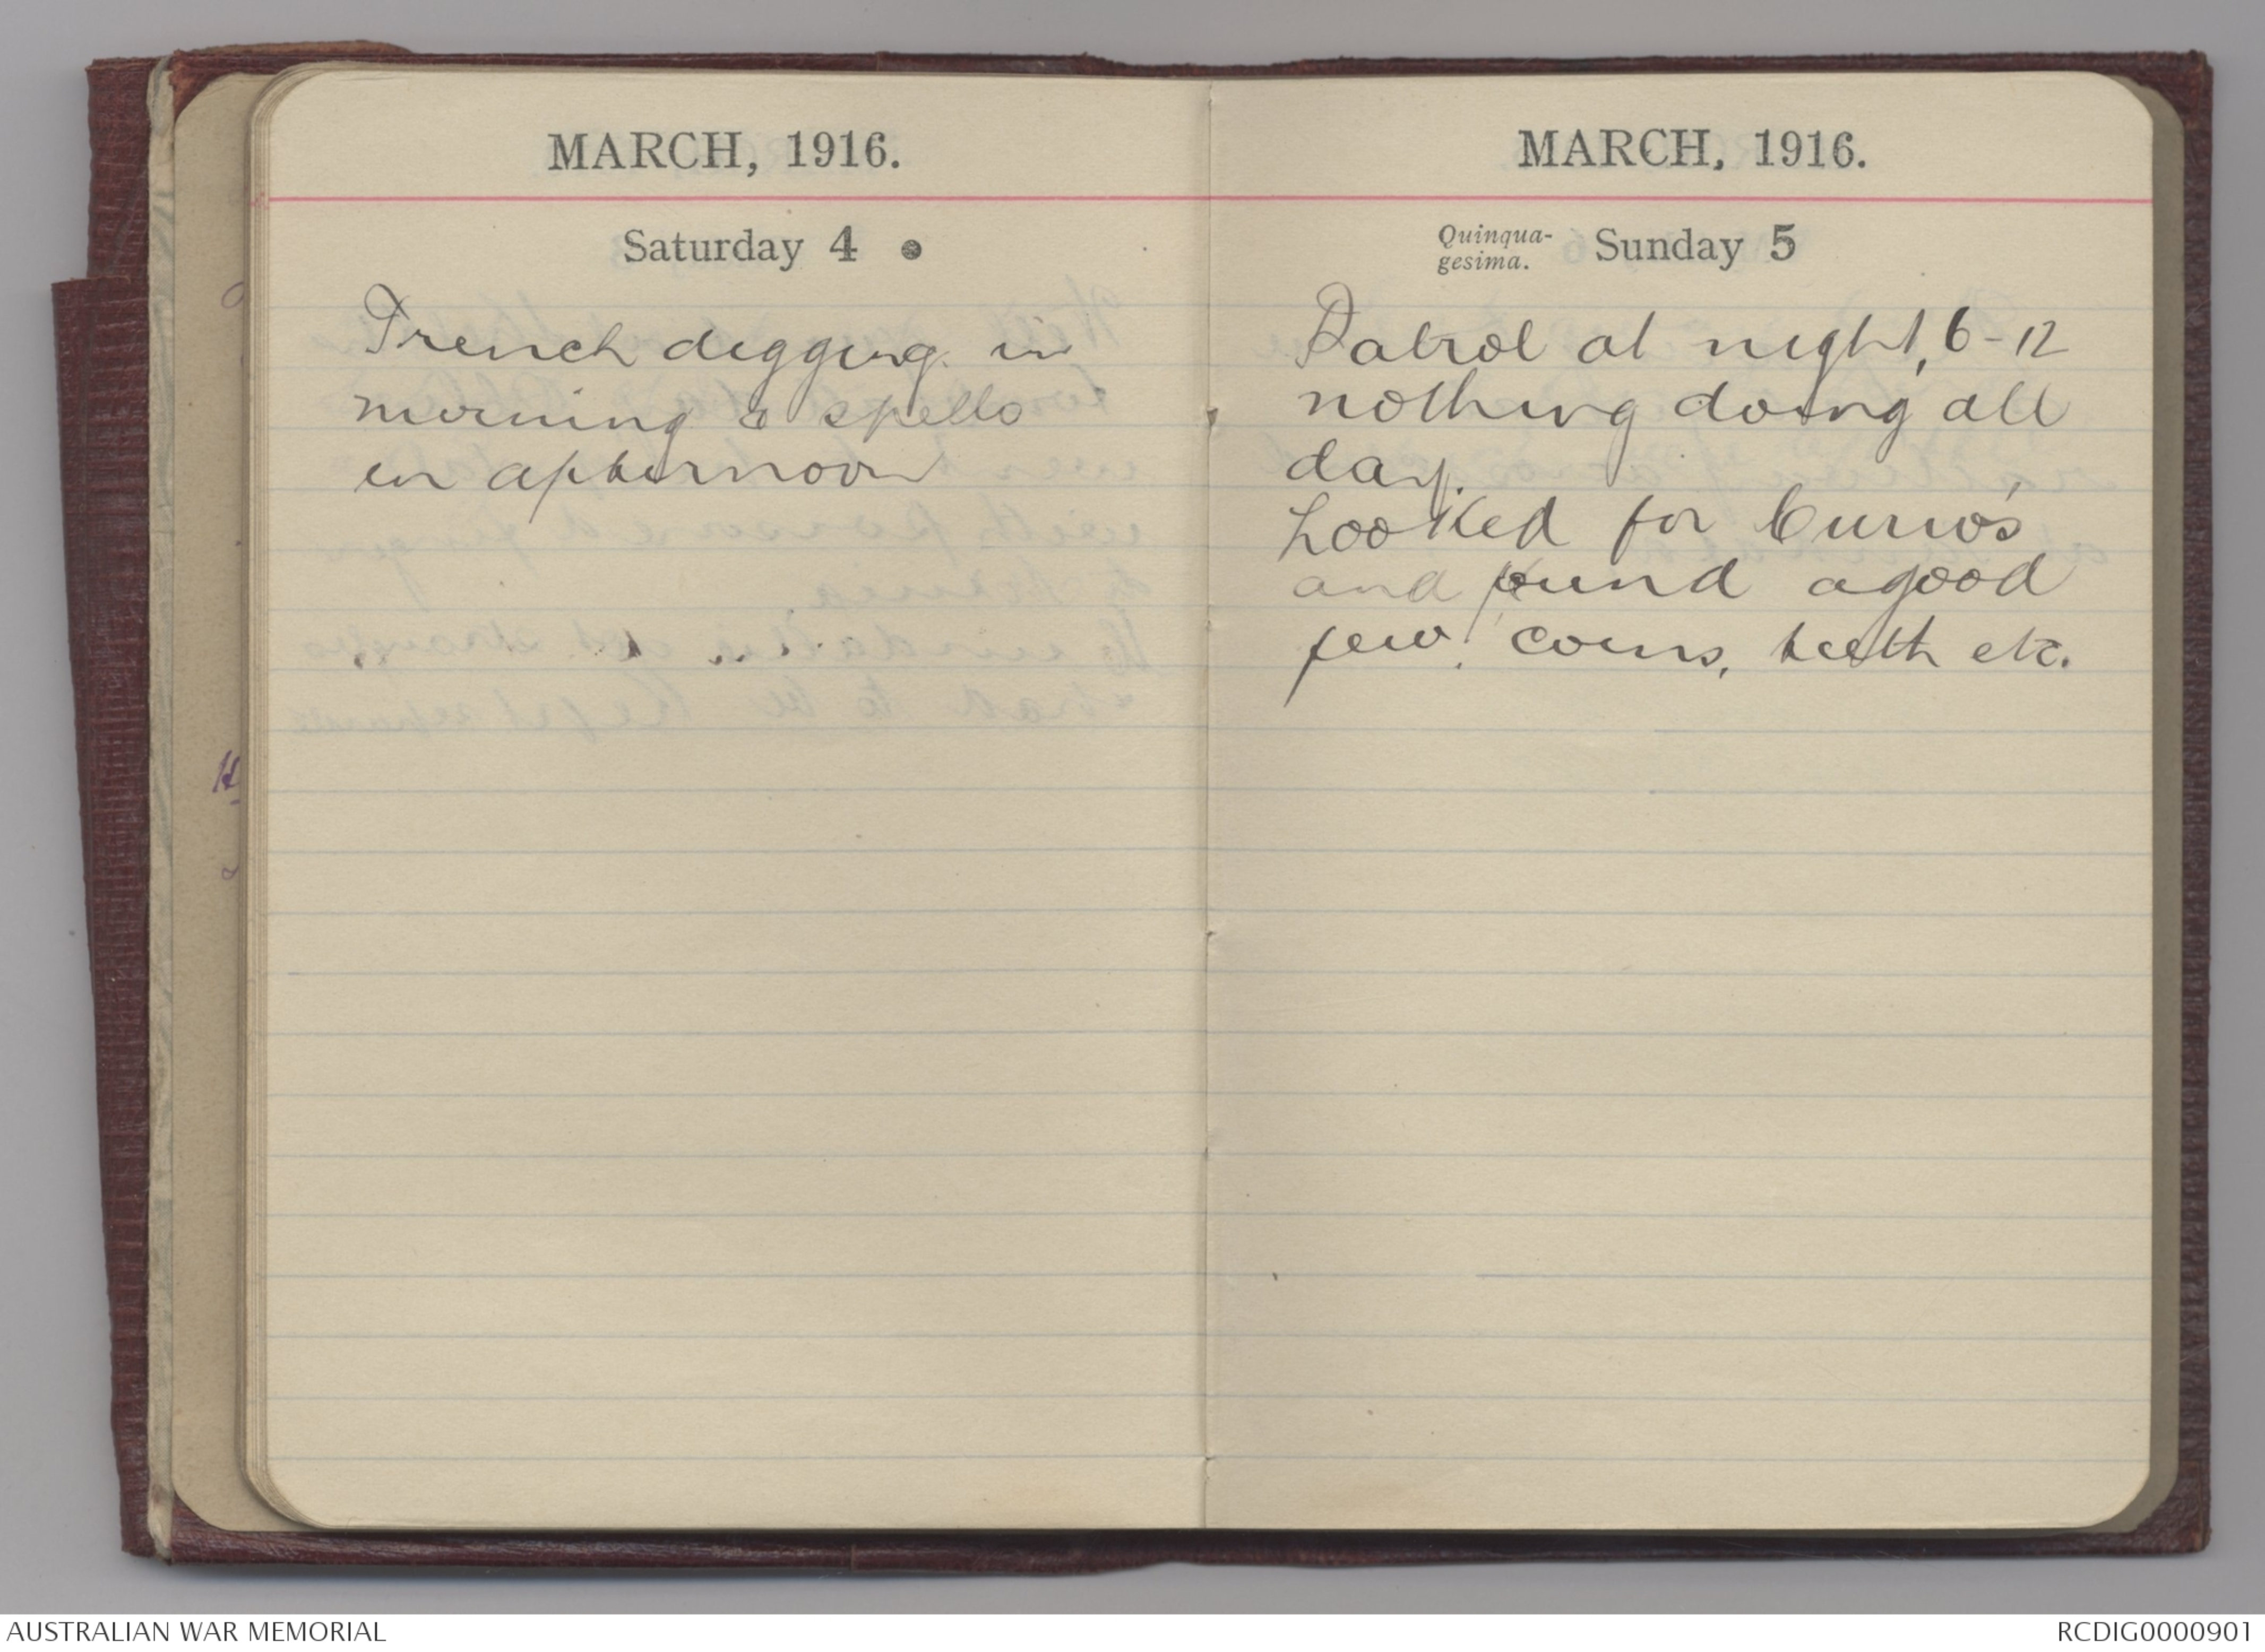 MARCH, 1916.
Saturday 4
Trench digging in
morning & spello
in afternoon
MARCH, 1916.
Quinqua-
gesima. Sunday 5
Patrol at night, 6-12
nothing doing all
day.
Looked for Curio's
and found a good
few. coins, teeth etc.
AUSTRALIAN WAR MEMORIAL
RCDIG0000901